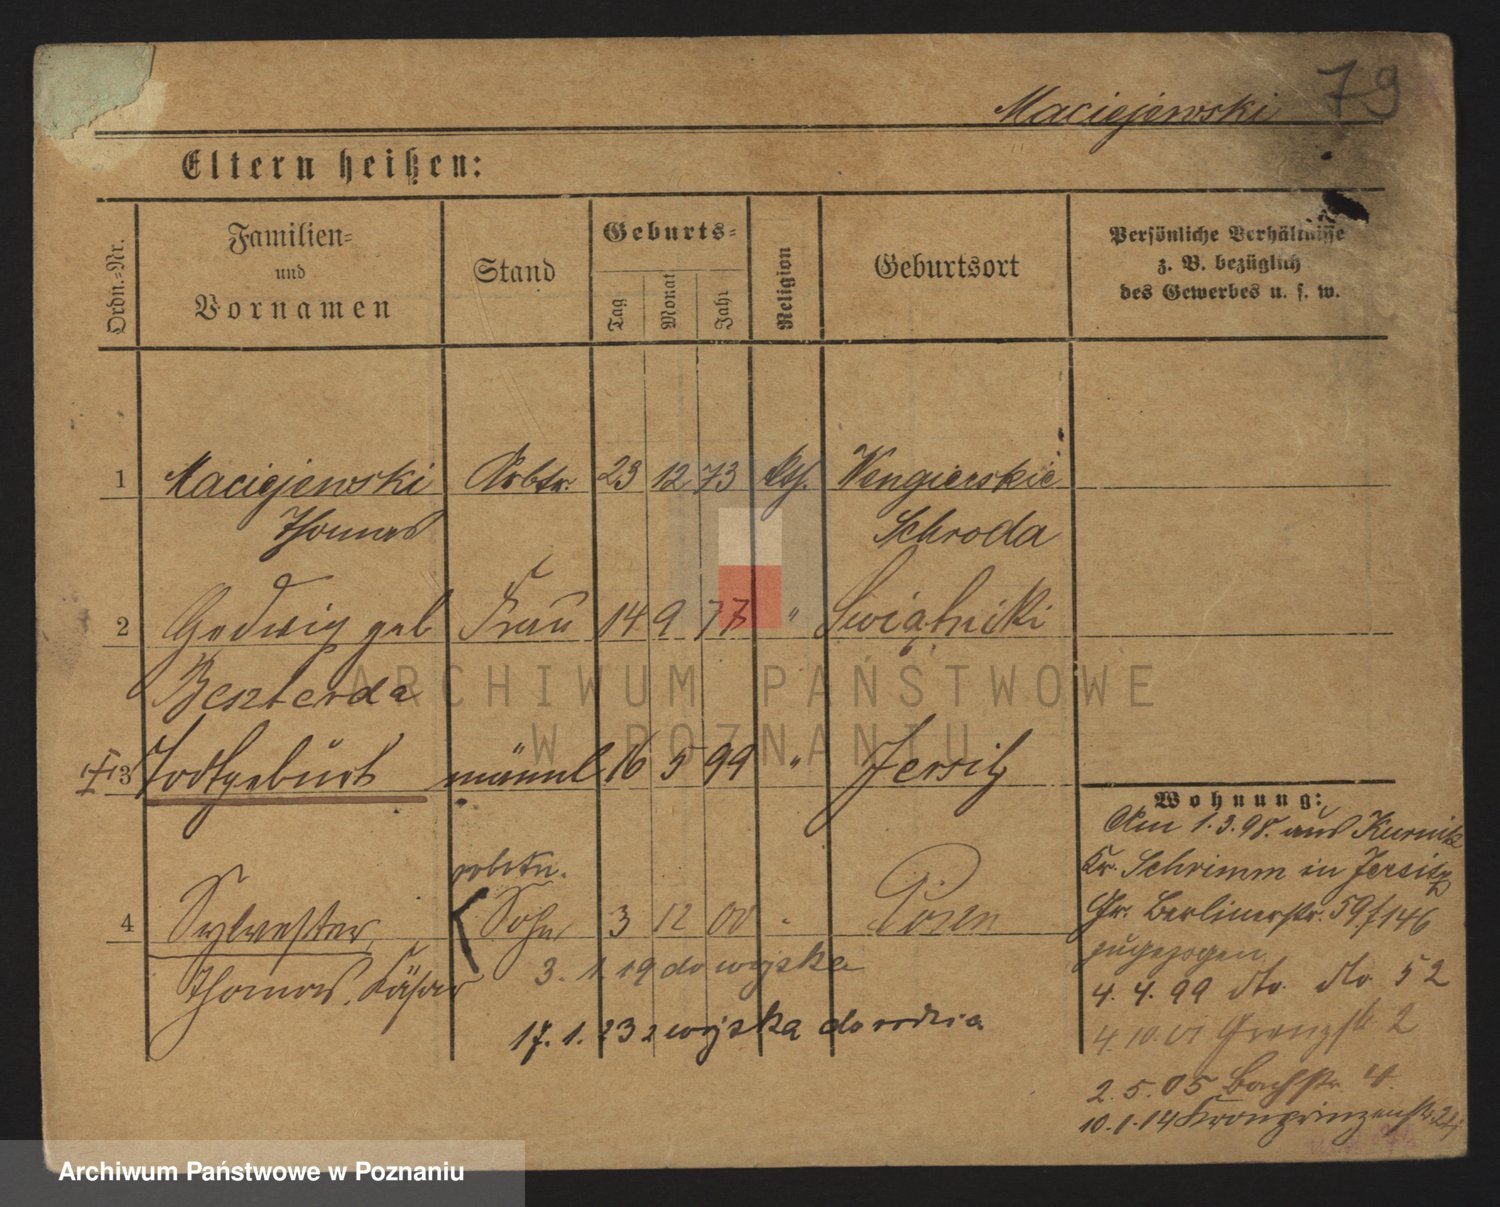 79
Maciejewski
Eltern heißen:
Ordn.-Nr.
Familien-
und
Vornamen
Stand
Geburts-
Tag
Monat
Jahr
Religion
Geburtsort
Persönliche Verhältnisse
z. B. bezüglich
des Gewerbes u. s. w.
1 Maciejewski Arbtr. 23 12 73 kth. Wengierskie
Thomas Schroda
2 Hedwig geb Frau 14 9 77 " Swiątniki
Beszterda
3 Todtgeburt männl 16 5 99 " Jersitz
robotn.
4 Sylvester, Sohn 3 12 00 Posen
Thomas, Cäsar
3. 1 19 do wojska
17. 1. 23 z wojska do rodzica
Wohnung:
Am 1.3.98. aus Kurnik
Kr. Schrimm in Jersitz
Gr. Berlinerstr. 59/146
zugezogen.
4. 4. 99 dto. dto 52
4. 10. 01 Grenzstr 2
2. 5. 05 Bachstr 4.
10. 1. 14 Kronprinzenstr.
ARCHIWUM PAŃSTWOWE
W POZNANIU
Archiwum Państwowe w Poznaniu